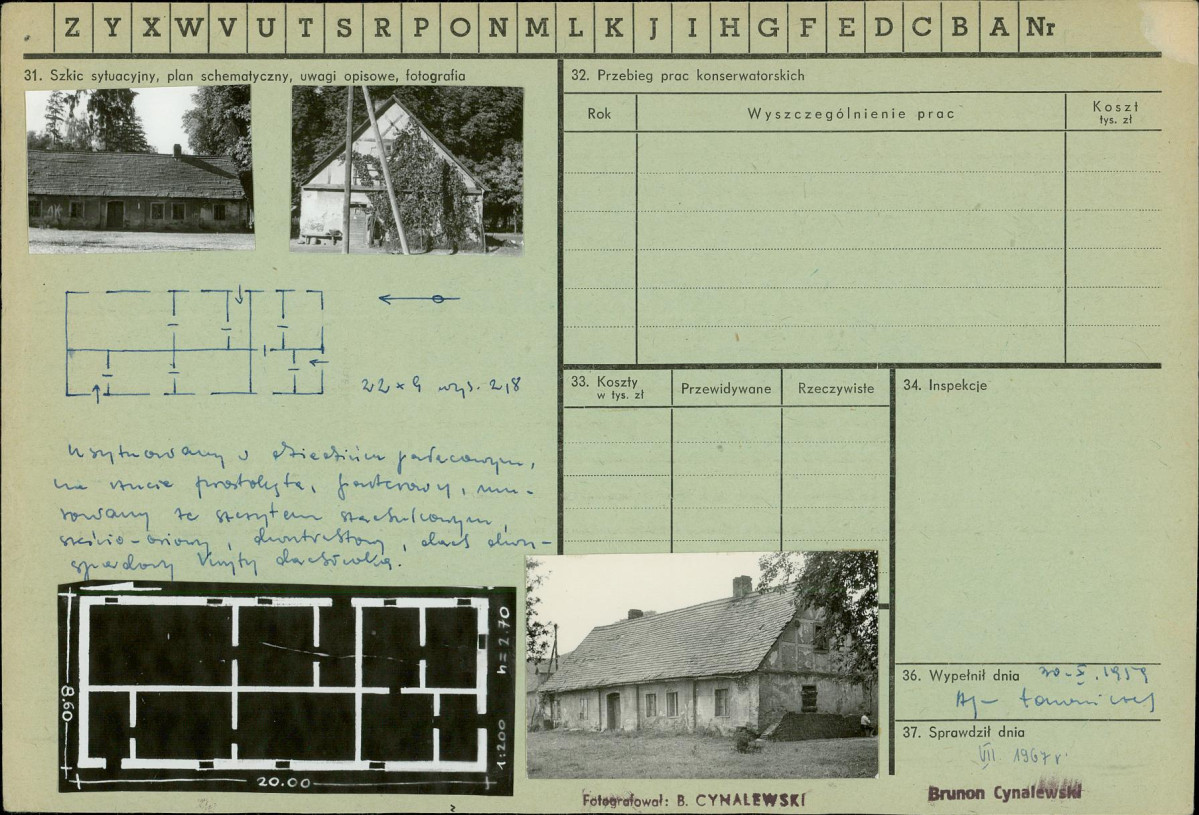 Z Y X W V U T S R P O N M L K J I H G F E D C B A Nr
31. Szkic sytuacyjny, plan schematyczny, uwagi opisowe, fotografia
22 × 9 wys. 2,8
Usytuowany w dziedzińcu pałacowym,
na rzucie prostokąta, parterowy, mu-
rowany ze szczytem szachulcowym,
sześcio-osiowy, dwutraktowy, dach dwu-
spadowy kryty dachówką.
8.60
20.00
h=2.70
1:200
32. Przebieg prac konserwatorskich
Rok
Wyszczególnienie prac
Koszt
tys. zł
33. Koszty
w tys. zł
Przewidywane
Rzeczywiste
34. Inspekcje
36. Wypełnił dnia 30.X.1959
37. Sprawdził dnia
VII 1967 r.
Fotografował: B. CYNALEWSKI
Brunon Cynalewski